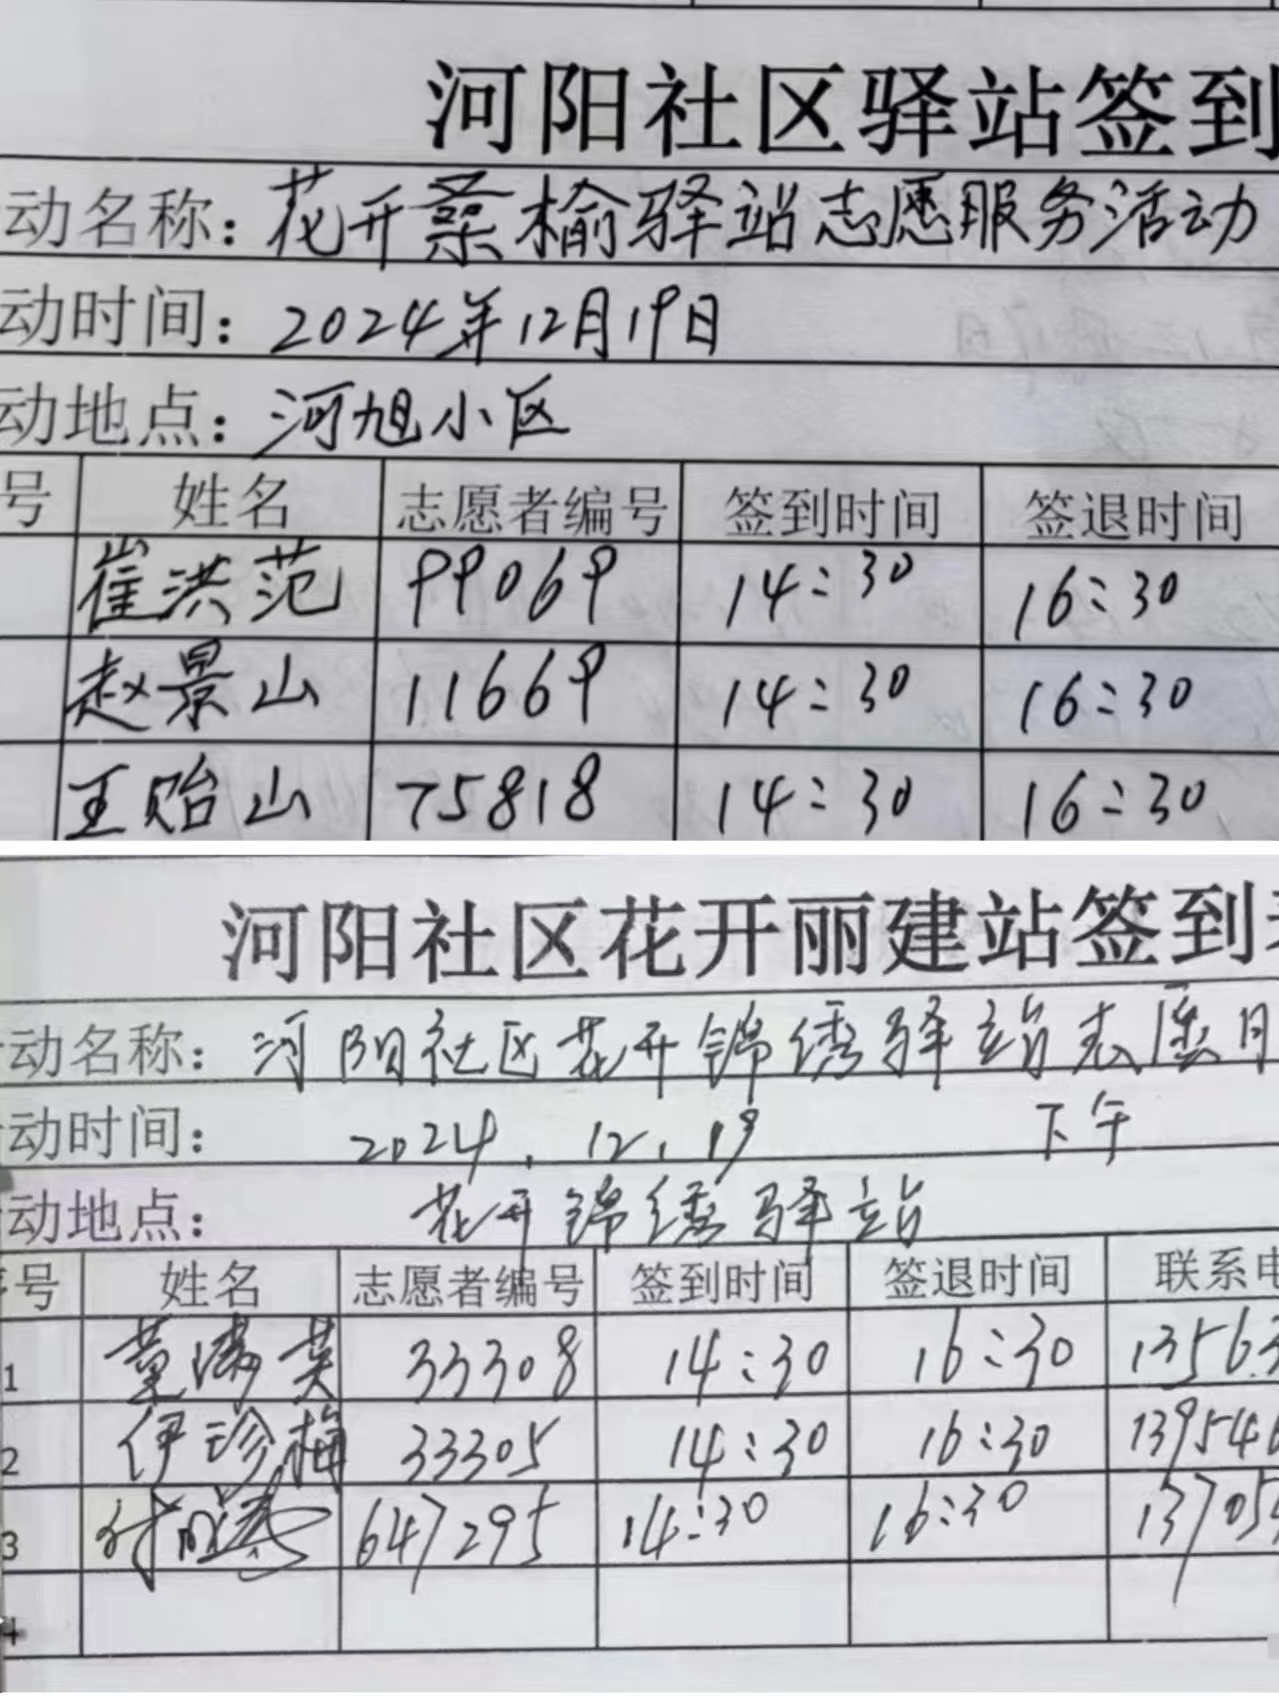 河阳社区驿站签到
动名称：花开桑榆驿站志愿服务活动
动时间：2024年12月19日
动地点：河旭小区
号 姓名 志愿者编号 签到时间 签退时间
崔洪范 99069 14:30 16:30
赵景山 11669 14:30 16:30
王贻山 75818 14:30 16:30
河阳社区花开丽建站签到
动名称：河阳社区花开锦绣驿站志愿
动时间： 2024.12.19 下午
动地点： 花开锦绣驿站
号 姓名 志愿者编号 签到时间 签退时间 联系
1 董满英 33308 14:30 16:30 1356
2 伊珍梅 33305 14:30 16:30 13954
3 647295 14:30 16:30 13705
4